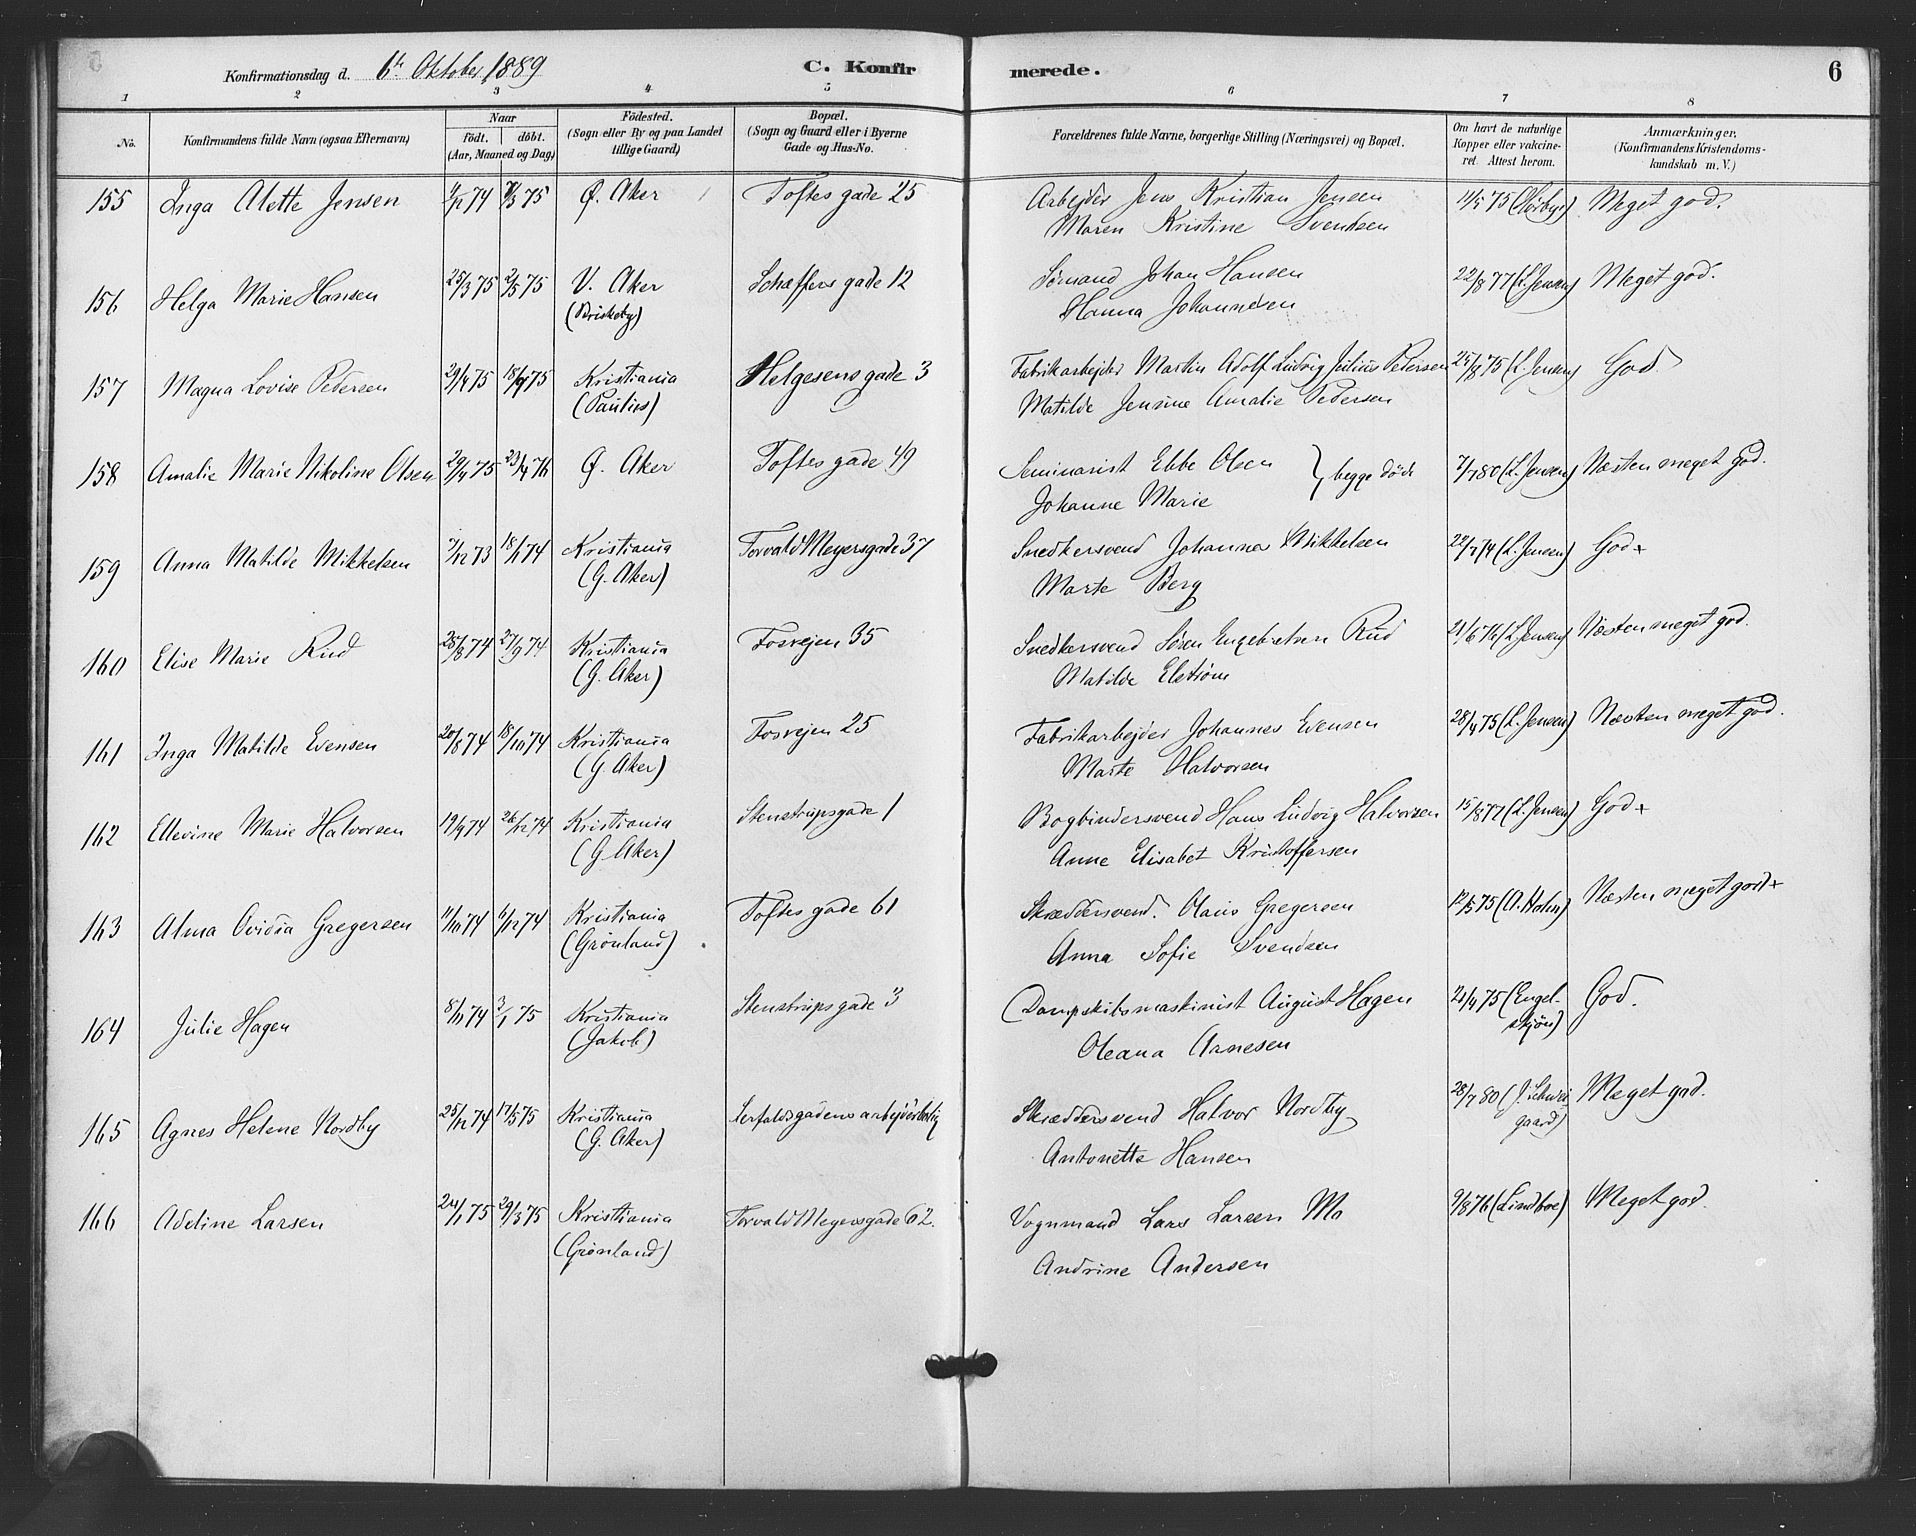 Konfirmationsdag d. 6te Oktober 1889 C. Konfirmerede. 6
1 2 3 4 5 6 7 8
No. Konfirmandens fulde Navn (ogsaa Efternavn) Naar født. døbt. (Aar, Maaned og Dag) Fødested. (Sogn eller By og paa Landet tillige Gaard) Bopæl. (Sogn og Gaard eller i Byerne Gade og Hus-No. Forældrenes fulde Navne, borgerlige Stilling (Næringsvei) og Bopæl. Om havt de naturlige Kopper eller vaccineret. Attest herom. Anmærkninger. (Konfirmandens Kristendomskundskab m. V.)
155 Inga Alette Jensen 74 75 Ø. Aker Toftes gade 25 Arbejder Jens Kristian Jensen 11/5 75 Meget god.
Maren Kristine Svendsen
156 Helga Marie Hansen 25/3 75 2/5 75 V. Aker Schæffers gade 12 Sømand Johan Hansen 22/8 77 (L. Jensen) Meget god.
(Briskeby) Hanna Johannesen
157 Magna Lovise Petersen 29/4 75 75 Kristiania Helgesens gade 3 Fabrikarbejder Martin Adolf Ludvig Julius Pedersen 25/8 75 (L. Jensen) God
(Paulus) Matilde Jensine Amalie Pedersen
158 Amalie Marie Nikoline Olsen 75 23/4 76 Ø. Aker Toftes gade 49 Seminarist Ebbe Olsen } begge døde 7/7 80 (L. Jensen) Næsten meget god.
Johanne Marie
159 Anna Matilde Mikkelsen 7/12 73 18/1 74 Kristiania Torvald Meyersgade 37 Snedkersvend Johannes Mikkelsen 74 (L. Jensen) God +
(G. Aker) Marte Berg
160 Elise Marie Rud 25/8 74 27/9 74 Kristiania Fosvejen 35 Snedkersvend Søren Engebretsen Rud 21/6 76 (L. Jensen) Næsten meget god.
(G. Aker) Matilde Elstrøm
161 Inga Matilde Evensen 20/8 74 18/10 74 Kristiania Fosvejen 25 Fabrikarbejder Johannes Evensen 28/4 75 (L. Jensen) Næsten meget god.
(G. Aker) Marte Halvorsen
162 Ellevine Marie Halvorsen 19/9 74 26/12 74 Kristiania Stenstrupsgade 1 Bogbindersvend Hans Ludvig Halvorsen 15/8 77 (L. Jensen) God +
(G. Aker) Anne Elisabet Kristoffersen
163 Alma Ovidia Gregersen 11/10 74 6/12 74 Kristiania Toftes gade 61 Skræddersvend. Olaus Gregersen 12/5 75 (A. Holm) Næsten meget god +
(Grønland) Anna Sofie Svendsen
164 Julie Hagen 8/11 74 3/1 75 Kristiania Stenstrups gade 3 Dampskibsmaskinist August Hagen 75 (Engel-
skjøn) God.
(Jakob) Oleana Arnesen
165 Agnes Helene Nordby 25/12 74 17/5 75 Kristiania Serfaldsgadens arbejderbolig Skræddersvend Halvor Nordby 28/7 80 (J. Schwei-
gaard) Meget god.
(G. Aker) Antonette Hansen
166 Adeline Larsen 24/1 75 29/3 75 Kristiania Torvald Meyersgade 62. Vognmand Lars Larsen Mo 9/8 76 (Lindboe) Meget god.
(Grønland) Andrine Andersen